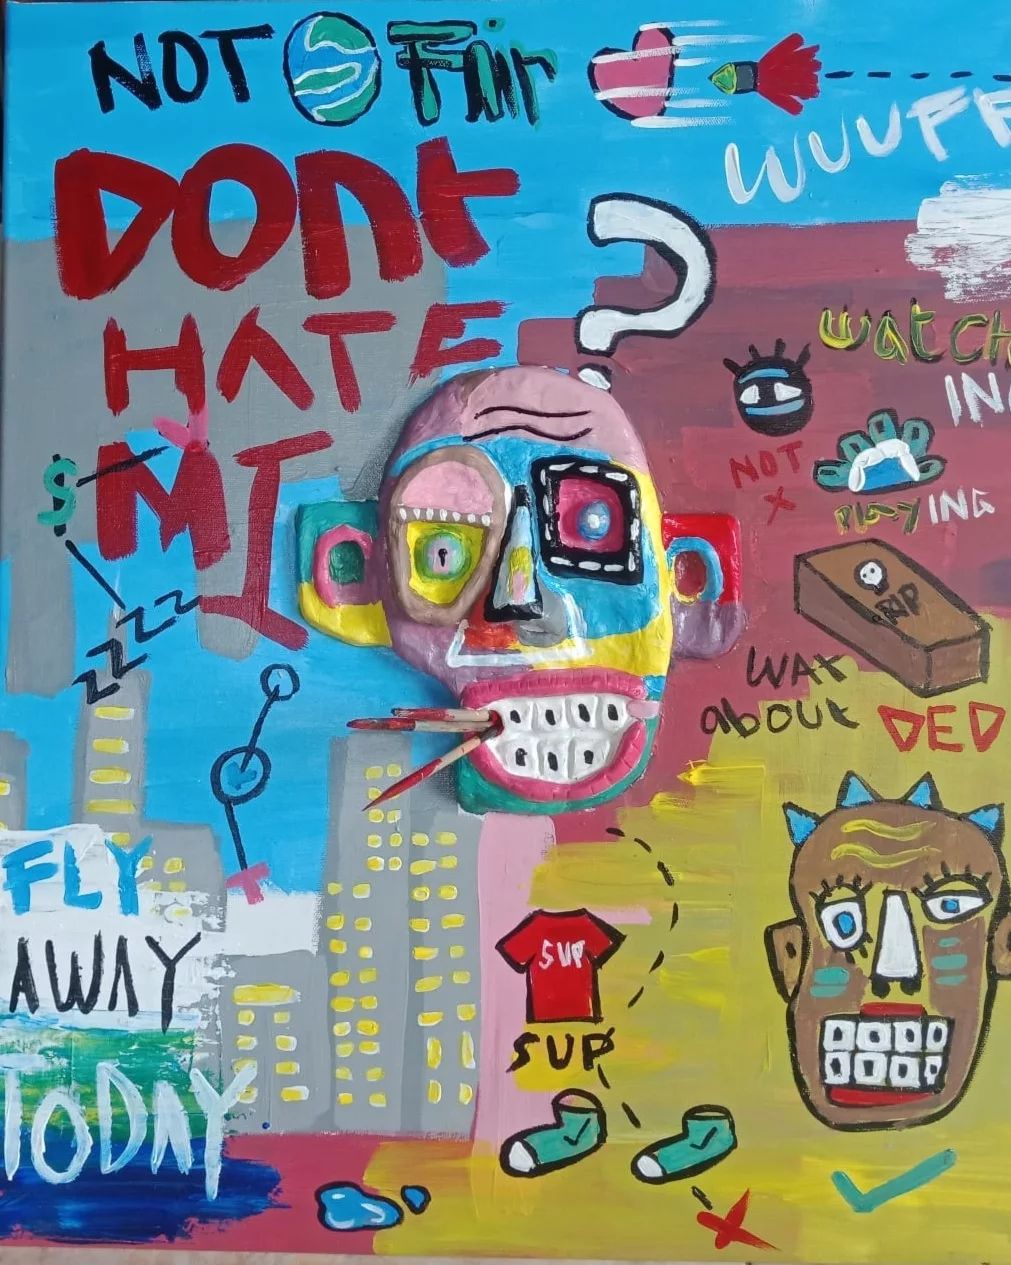 NOT Fair
WUUFF
DONt
HATE
MI
WATCH
ING
NOT
X
PlayING
$
RIP
ZZZZ
WAt
about DED
FLY
AWAY
TODAY
SUP
SUP